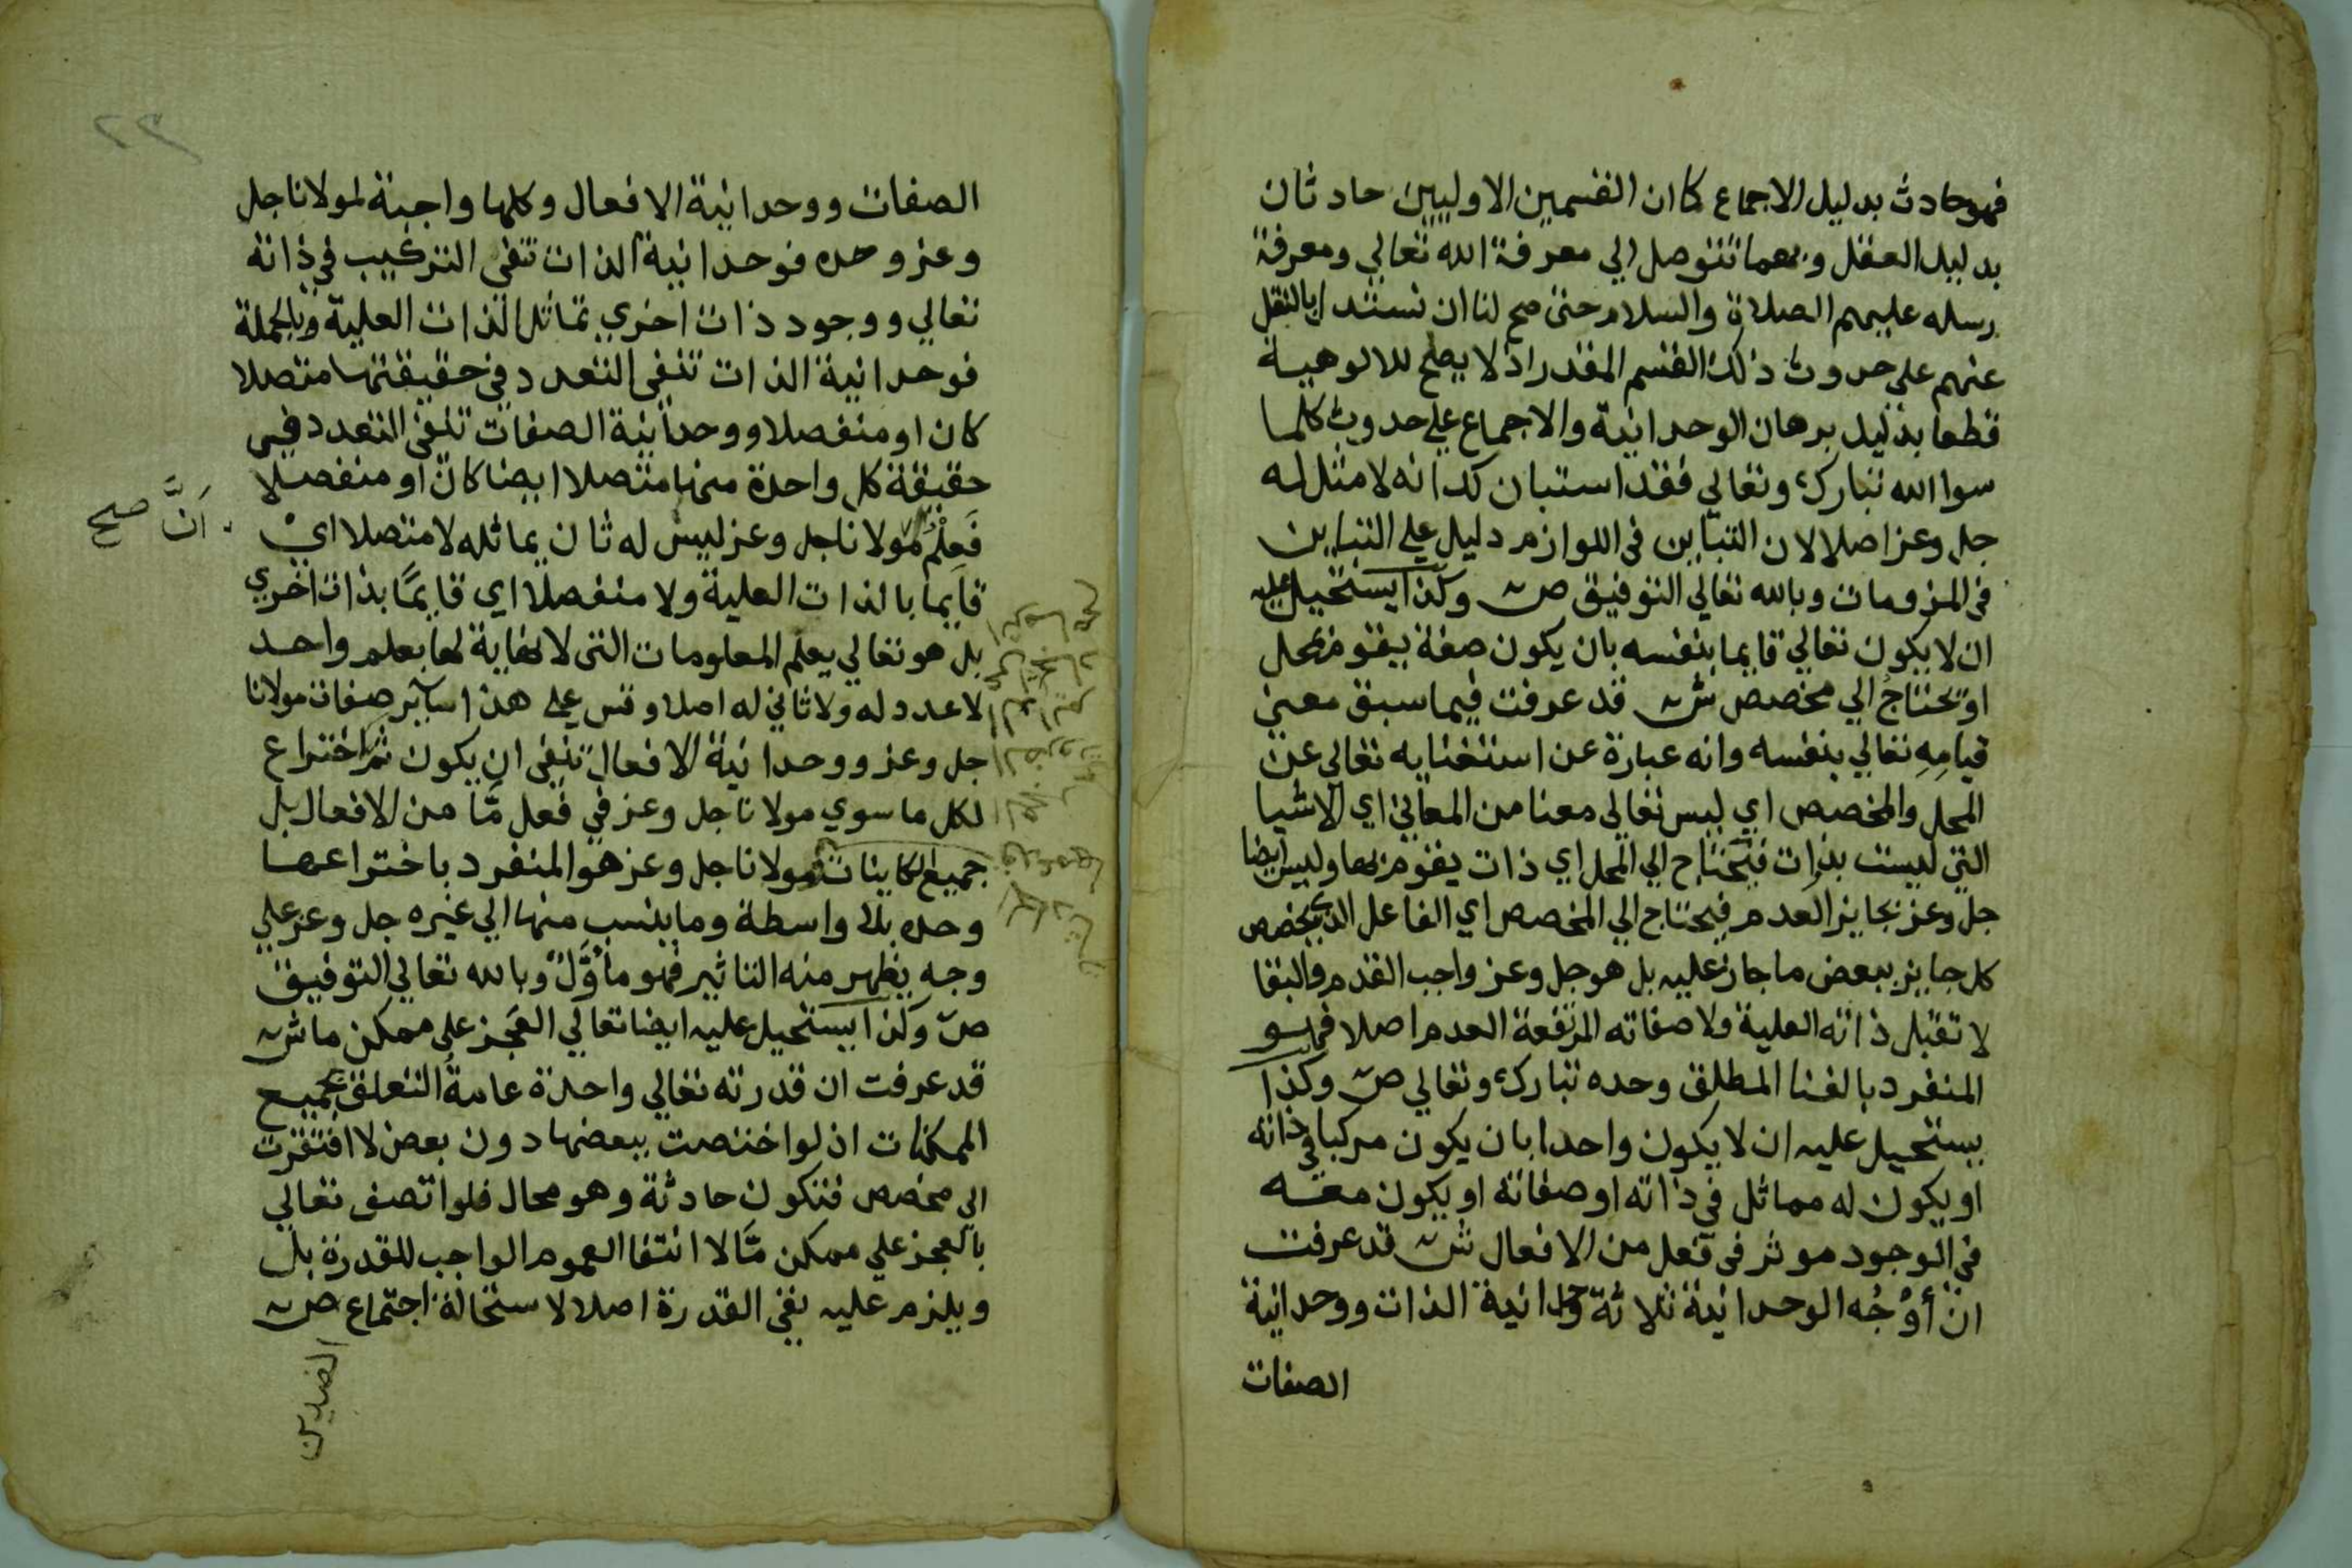 فهو حادث بدليل الاجماع كا ان القسمين الاوليين حادثان
بدليل العقل وبهما نتوصل الي معرفة الله تعالي ومعرفة
رسله عليهم الصلاة والسلام حتى صح لنا ان نستدل بالنقل
عنهم على حدوث ذلك القسم المقدر اذ لا يصلح للالوهية
قطعا بدليل برهان الوحدانية والاجماع علي حدوث كلما
سوا الله تبارك وتعالي فقد استبان لك انه لا مثل له
جل وعز اصلا لان التباين في اللوازم دليل علي التباين
في الملزومات وبالله تعالي التوفيق ص وكذا يستحيل عليه
ان لا يكون تعالي قايما بنفسه بان يكون صفة يقوم بمحل
او يحتاج الي مخصص ش قد عرفت فيما سبق معني
قيامه تعالي بنفسه وانه عبارة عن استغنايه تعالي عن
المحل والمخصص اي ليس تعالي معنا من المعاني اي الاشيا
التي ليست بذوات فيحتاج الي المحل اي ذات يقوم بها وليس ايضا
جل وعز بجايز العدم فيحتاج الي المخصص اي الفاعل الذي يخصص
كل جايز ببعض ما جاز عليه بل هو جل وعز واجب القدم والبقا
لا تقبل ذاته العلية ولا صفاته المرتفعة العدم اصلا فهو
المنفرد بالغنا المطلق وحده تبارك وتعالي ص وكذا
يستحيل عليه ان لا يكون واحدا بان يكون مركبا في ذاته
او يكون له مماثل في ذاته او صفاته او يكون معه
في الوجود موثر في فعل من الافعال ش قد عرفت
ان أوْجُه الوحدانية ثلاثة وحدانية الذات ووحدانية
الصفات
٢٣
الصفات ووحدانية الافعال وكلها واجبة لمولانا جل
وعز وحده فوحدانية الذات تنفي التركيب في ذاته
تعالي ووجود ذات اخري تماثل الذات العلية وبالجملة
فوحدانية الذات تنفي التعدد في حقيقتها متصلا
كان او منفصلا ووحدانية الصفات تنفي التعدد في
حقيقة كل واحدة منها متصلا ايضا كان او منفصلا
فَعِلْمُ مولانا جل وعز ليس له ثان يماثله لا متصلا اي
أنَّ صح
قايما بالذات العلية ولا منفصلا اي قايمًا بذات اخري
بل هو تعالي يعلم المعلومات التي لا نهاية لها بعلم واحد
لا عدد له ولا ثاني له اصلا وقس علي هذا ساير صفات مولانا
جل وعز ووحدانية الافعال تنفي ان يكون ثم اختراع
لكل ما سوي مولانا جل وعز في فعل مّا من الافعال بل
جميع الكاينات مولانا جل وعز هو المنفرد باختراعها
وحده بلا واسطة وما ينسب منها الي غيره جل وعز علي
وجه يظهر منه التاثير فهو مأوَّل وبالله تعالي التوفيق
ص وكذا يستحيل عليه ايضا تعالي العجز علي ممكن ما ش
قد عرفت ان قدرته تعالي واحدة عامةُ التعلق بجميع
الممكنات اذ لو اختصت ببعضها دون بعض لا افتقرت
الي مخصص فتكون حادثة وهو محال فلو اتصف تعالي
بالعجز علي ممكن مّا لا انتفا العموم الواجب للقدرة بل
ويلزم عليه نفي القدرة اصلا لاستحالة اجتماع ص
الضدين